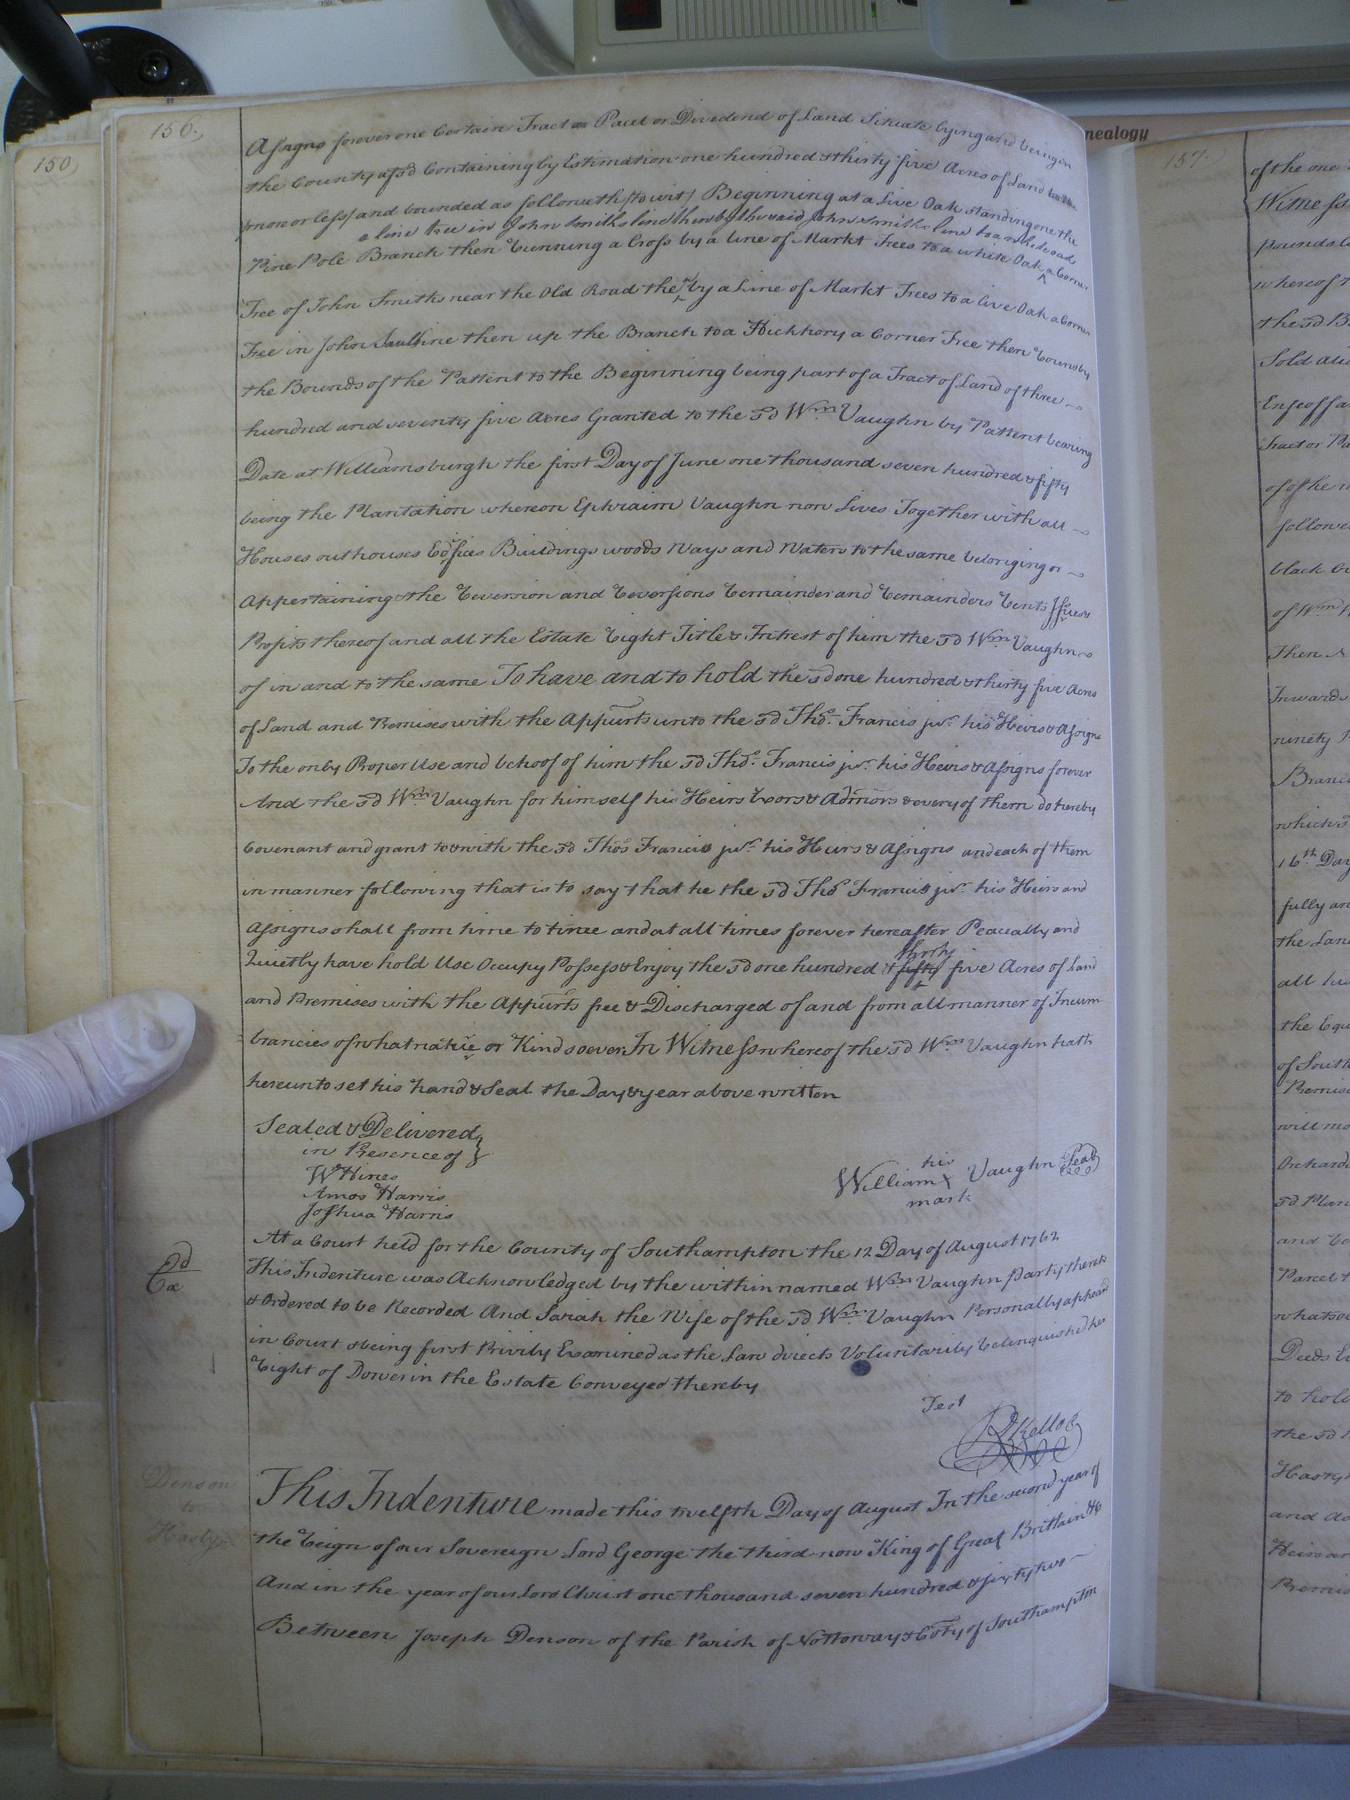 156.
150
nealogy
157.
Assigns forever one Certain Tract or Pacel or Dividend of Land Situate lying and being in
the County afsd Containing by Estimation one hundred & thirty five Acres of Land be the
same more or less and bounded as followeth (to wit) Beginning at a Live Oak standing on the
a line tree in John Smiths line thence by the said John Smiths line to an old road
Pine Pole Branch then Running a Cross by a line of Markt Trees to a white Oak a Corner
Tree of John Smiths near the Old Road then by a Line of Markt Trees to a live Oak a Corner
Tree in John line then up the Branch to a Hickhory a Corner Tree then bounds by
the Bounds of the Pattent to the Beginning being part of a Tract of Land of three
hundred and seventy five Acres Granted to the sd Wm Vaughn by Pattent bearing
Date at Williamsburgh the first Day of June one thousand seven hundred & fifty
being the Plantation whereon Ephraim Vaughn now Lives Together with all
Houses outhouses Edifices Buildings woods Ways and Waters to the same belonging or
Appertaining & the Reversion and Reversions Remainder and Remainders Rents Issues &
Profits thereof and all the Estate Right Title & Intrest of him the sd Wm Vaughn
of in and to the same To have and to hold the sd one hundred & thirty five Acres
of Land and Premises with the Appurts unto the sd Thos. Francis junr. his Heirs & Assigns
To the only Proper Use and behoof of him the sd Thos. Francis junr. his Heirs & Assigns forever
And the sd Wm Vaughn for himself his Heirs Exors & Admors & every of them do hereby
Covenant and grant to & with the sd Thos Francis junr. his Heirs & Assigns and each of them
in manner following that is to say that he the sd Thos Francis junr. his Heirs and
Assigns shall from time to time and at all times forever hereafter Peaceably and
thirty
Quietly have hold Use Occupy Possess & Enjoy the sd one hundred & fifty five Acres of Land
and Premises with the Appurts free & Discharged of and from all manner of Incum
brancies of what nature or Kind soever In Witness whereof the sd Wm Vaughn hath
hereunto set his hand & Seal the Day & year above written
Sealed & Delivered
in Presence of
W Hines
Amos Harris
Joshua Harris
his
William X Vaughn Seal
mark
At a Court held for the County of Southampton the 12 Day of August 1762
This Indenture was Acknowledged by the within named Wm Vaughn party thereto
& Ordered to be Recorded And Sarah the Wife of the sd Wm Vaughn Personally appeard
in Court & being first Privily Examined as the Law directs Voluntarily Relinquished her
Right of Dower in the Estate Conveyed thereby
Test
R Kello
Ed
Ex
Denson
to
This Indenture made this twelfth Day of August In the second year of
the Reign of our Sovereign Lord George the third now King of Great Brittain &c
And in the year of our Lord Christ one thousand seven hundred & sixty two
Between Joseph Denson of the Parish of Nottoway & Coty of Southampton
of the one
Witness
pounds
whereof
the sd
Sold
Enfeoff
Tract or
of the
followe
black
of Wm
Then
Inwards
ninety
Branc
which
16th Day
fully an
the Lan
all his
the Equ
of South
Premis
will
Orchard
sd Plan
and
Parcel
whatso
Deeds
to hol
the sd
and
Heirs
Premis